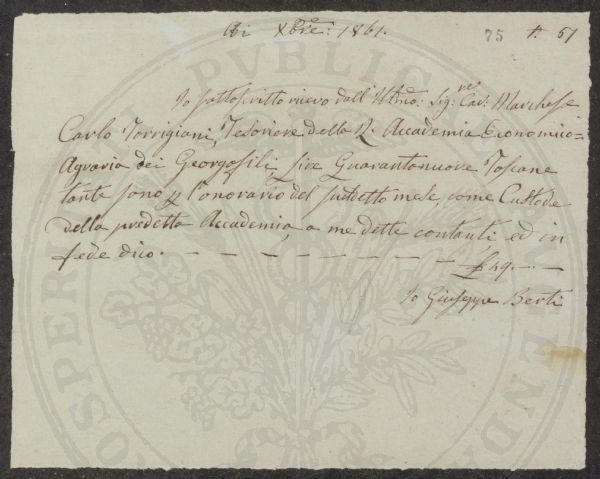 Adi Xbre: 1861. 75 A. 51
Io sottoscritto ricevo dall'Illmo: Sig:re Cav: Marchese
Carlo Torrigiani, Tesoriere della R. Accademia Economico=
Agraria dei Georgofili, Lire Quarantanuove Toscane
tante sono p l'onorario del suddetto mese, come Custode
della predetta Accademia, a me dette contanti ed in
fede dico. — — — — — — — — £ 49. — —
Io Giuseppe Berti
PUBLICAE
PROSPERITATI